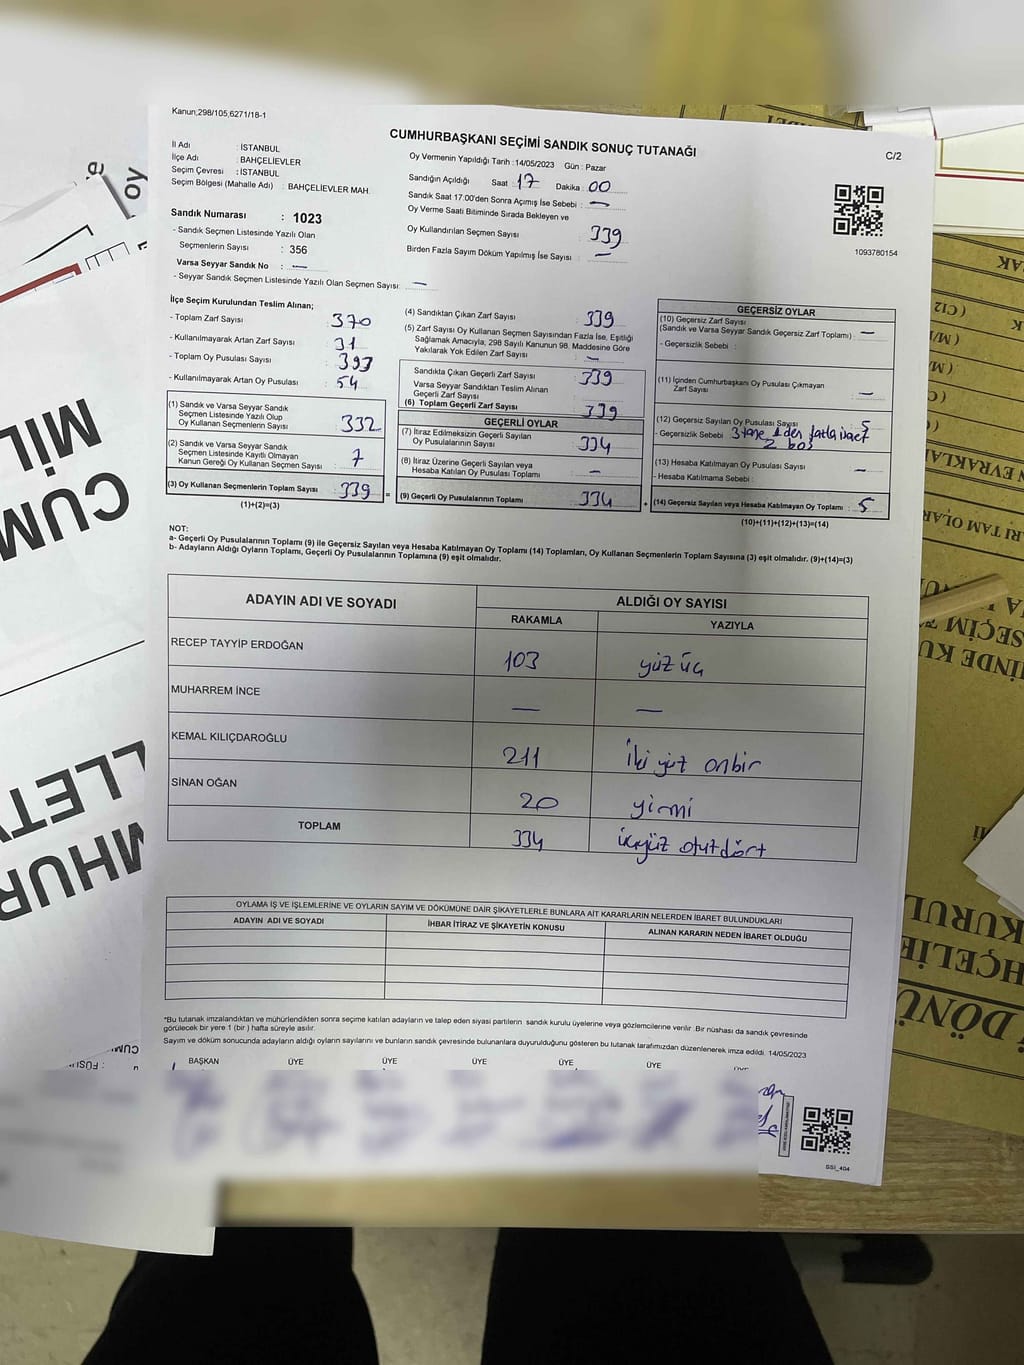 Kanun;298/105,6271/18-1
CUMHURBAŞKANI SEÇİMİ SANDIK SONUÇ TUTANAĞI
C/2
İl Adı : İSTANBUL
İlçe Adı : BAHÇELİEVLER
Seçim Çevresi : İSTANBUL
Seçim Bölgesi (Mahalle Adı) : BAHÇELİEVLER MAH.
Sandık Numarası : 1023
- Sandık Seçmen Listesinde Yazılı Olan
Seçmenlerin Sayısı : 356
Varsa Seyyar Sandık No : —
- Seyyar Sandık Seçmen Listesinde Yazılı Olan Seçmen Sayısı: —
Oy Vermenin Yapıldığı Tarih :14/05/2023 Gün : Pazar
Sandığın Açıldığı Saat 17 Dakika 00
Sandık Saat 17.00'den Sonra Açımış İse Sebebi : —
Oy Verme Saati Bitiminde Sırada Bekleyen ve
Oy Kullandırılan Seçmen Sayısı : 339
Birden Fazla Sayım Döküm Yapılmış İse Sayısı : —
1093780154
İlçe Seçim Kurulundan Teslim Alınan;
- Toplam Zarf Sayısı : 370
- Kullanılmayarak Artan Zarf Sayısı : 31
- Toplam Oy Pusulası Sayısı : 393
- Kullanılmayarak Artan Oy Pusulası : 54
(1) Sandık ve Varsa Seyyar Sandık
Seçmen Listesinde Yazılı Olup
Oy Kullanan Seçmenlerin Sayısı : 332
(2) Sandık ve Varsa Seyyar Sandık
Seçmen Listesinde Kayıtlı Olmayan
Kanun Gereği Oy Kullanan Seçmen Sayısı : 7
(3) Oy Kullanan Seçmenlerin Toplam Sayısı : 339
(1)+(2)=(3)
(4) Sandıktan Çıkan Zarf Sayısı : 339
(5) Zarf Sayısı Oy Kullanan Seçmen Sayısından Fazla İse, Eşitliği
Sağlamak Amacıyla, 298 Sayılı Kanunun 98. Maddesine Göre
Yakılarak Yok Edilen Zarf Sayısı : —
Sandıkta Çıkan Geçerli Zarf Sayısı : 339
Varsa Seyyar Sandıktan Teslim Alınan
Geçerli Zarf Sayısı :
(6) Toplam Geçerli Zarf Sayısı : 339
GEÇERLİ OYLAR
(7) İtiraz Edilmeksizin Geçerli Sayılan
Oy Pusulalarının Sayısı : 334
(8) İtiraz Üzerine Geçerli Sayılan veya
Hesaba Katılan Oy Pusulası Toplamı : —
(9) Geçerli Oy Pusulalarının Toplamı : 334
GEÇERSİZ OYLAR
(10) Geçersiz Zarf Sayısı
(Sandık ve Varsa Seyyar Sandık Geçersiz Zarf Toplamı) : —
- Geçersizlik Sebebi :
(11) İçinden Cumhurbaşkanı Oy Pusulası Çıkmayan
Zarf Sayısı : —
(12) Geçersiz Sayılan Oy Pusulası Sayısı : 5
- Geçersizlik Sebebi : 3 tane 1 den fazla
2 boş
(13) Hesaba Katılmayan Oy Pusulası Sayısı : —
- Hesaba Katılmama Sebebi :
(14) Geçersiz Sayılan veya Hesaba Katılmayan Oy Toplamı : 5
(10)+(11)+(12)+(13)=(14)
NOT:
a- Geçerli Oy Pusulalarının Toplamı (9) ile Geçersiz Sayılan veya Hesaba Katılmayan Oy Toplamı (14) Toplamları, Oy Kullanan Seçmenlerin Toplam Sayısına (3) eşit olmalıdır. (9)+(14)=(3)
b- Adayların Aldığı Oyların Toplamı, Geçerli Oy Pusulalarının Toplamına (9) eşit olmalıdır.
ADAYIN ADI VE SOYADI ALDIĞI OY SAYISI
RAKAMLA YAZIYLA
RECEP TAYYİP ERDOĞAN 103 yüz üç
MUHARREM İNCE — —
KEMAL KILIÇDAROĞLU 211 iki yüz onbir
SİNAN OĞAN 20 yirmi
TOPLAM 334 üçyüz otutdört
OYLAMA İŞ VE İŞLEMLERİNE VE OYLARIN SAYIM VE DÖKÜMÜNE DAİR ŞİKAYETLERLE BUNLARA AİT KARARLARIN NELERDEN İBARET BULUNDUKLARI
ADAYIN ADI VE SOYADI İHBAR İTİRAZ VE ŞİKAYETİN KONUSU ALINAN KARARIN NEDEN İBARET OLDUĞU
*Bu tutanak imzalandıktan ve mühürlendikten sonra seçime katılan adayların ve talep eden siyasi partilerin sandık kurulu üyelerine veya gözlemcilerine verilir .Bir nüshası da sandık çevresinde
görülecek bir yere 1 (bir ) hafta süreyle asılır.
Sayım ve döküm sonucunda adayların aldığı oyların sayılarını ve bunların sandık çevresinde bulunanlara duyurulduğunu gösteren bu tutanak tarafımızdan düzenlenerek imza edildi. 14/05/2023
BAŞKAN ÜYE ÜYE ÜYE ÜYE ÜYE
SSİ_404
oy
MİL
CUM
LLETV
MHUR